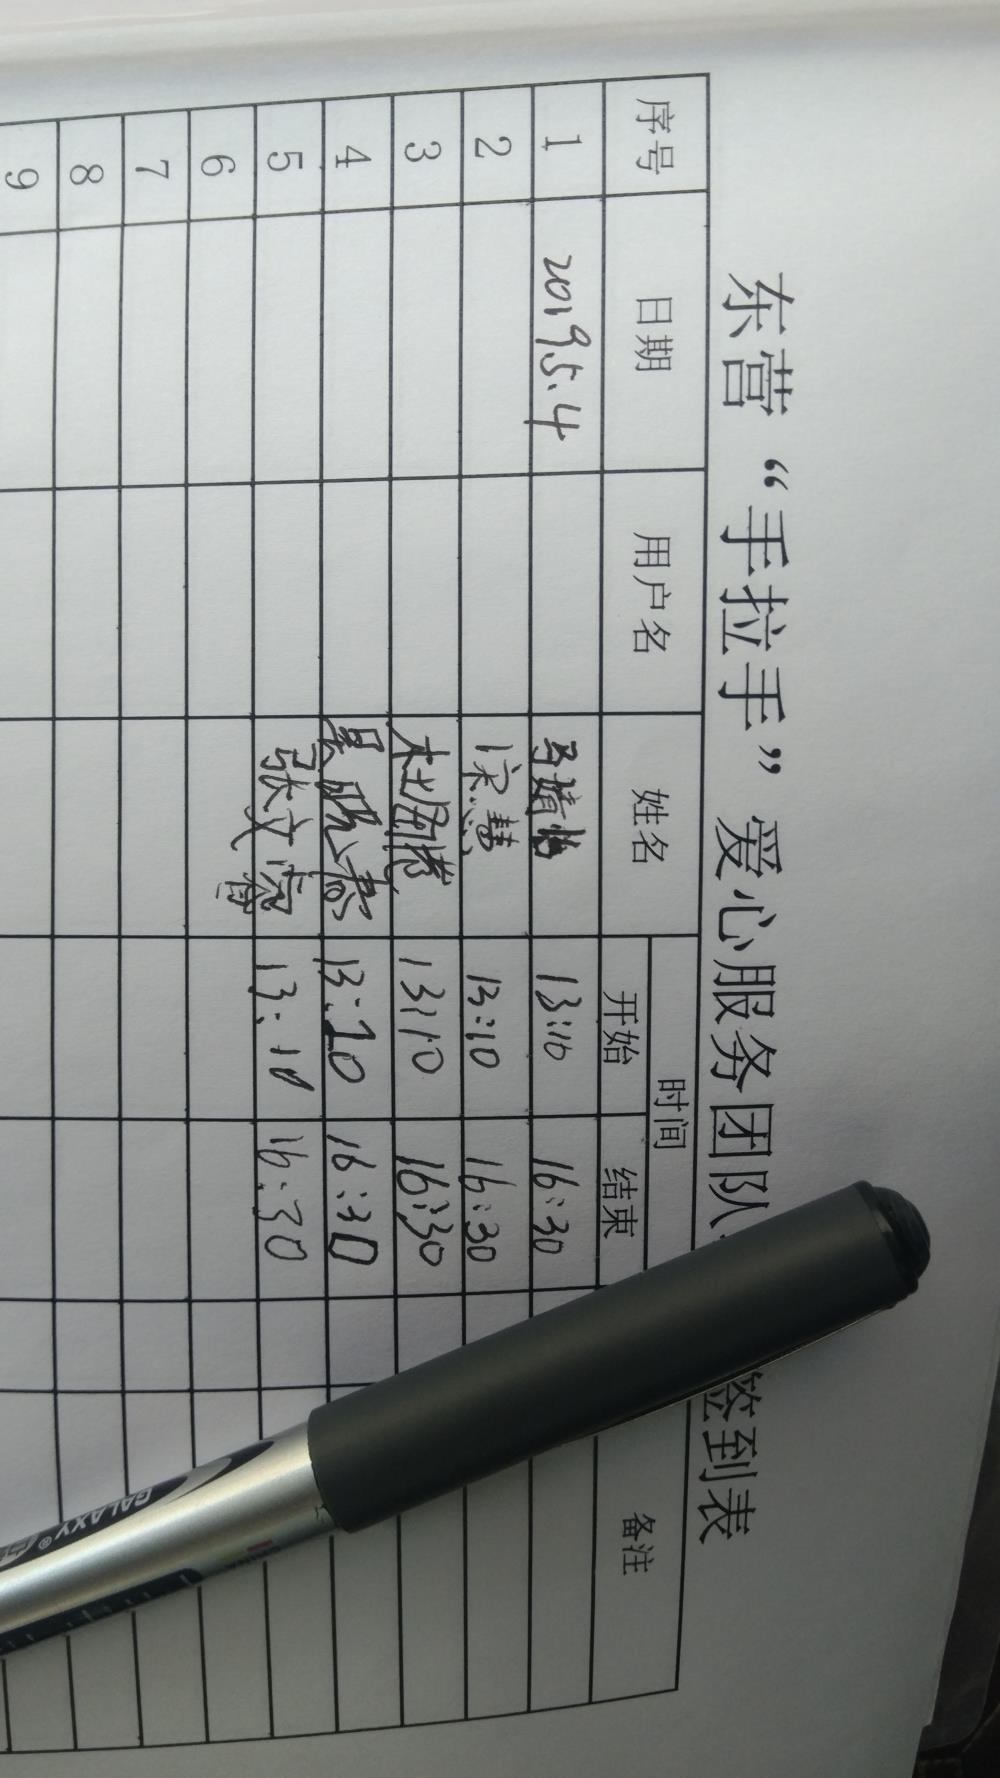 东营“手拉手”爱心服务团队
签到表
序号 日期 用户名 姓名 时间 备注
开始 结束
1 2019.5.4 马婧怡 13:10 16:30
2 宋慧 13:10 16:30
3 13:10 16:30
4 13:10 16:30
5 张文 13:10 16:30
6
7
8
9
GALAXY®